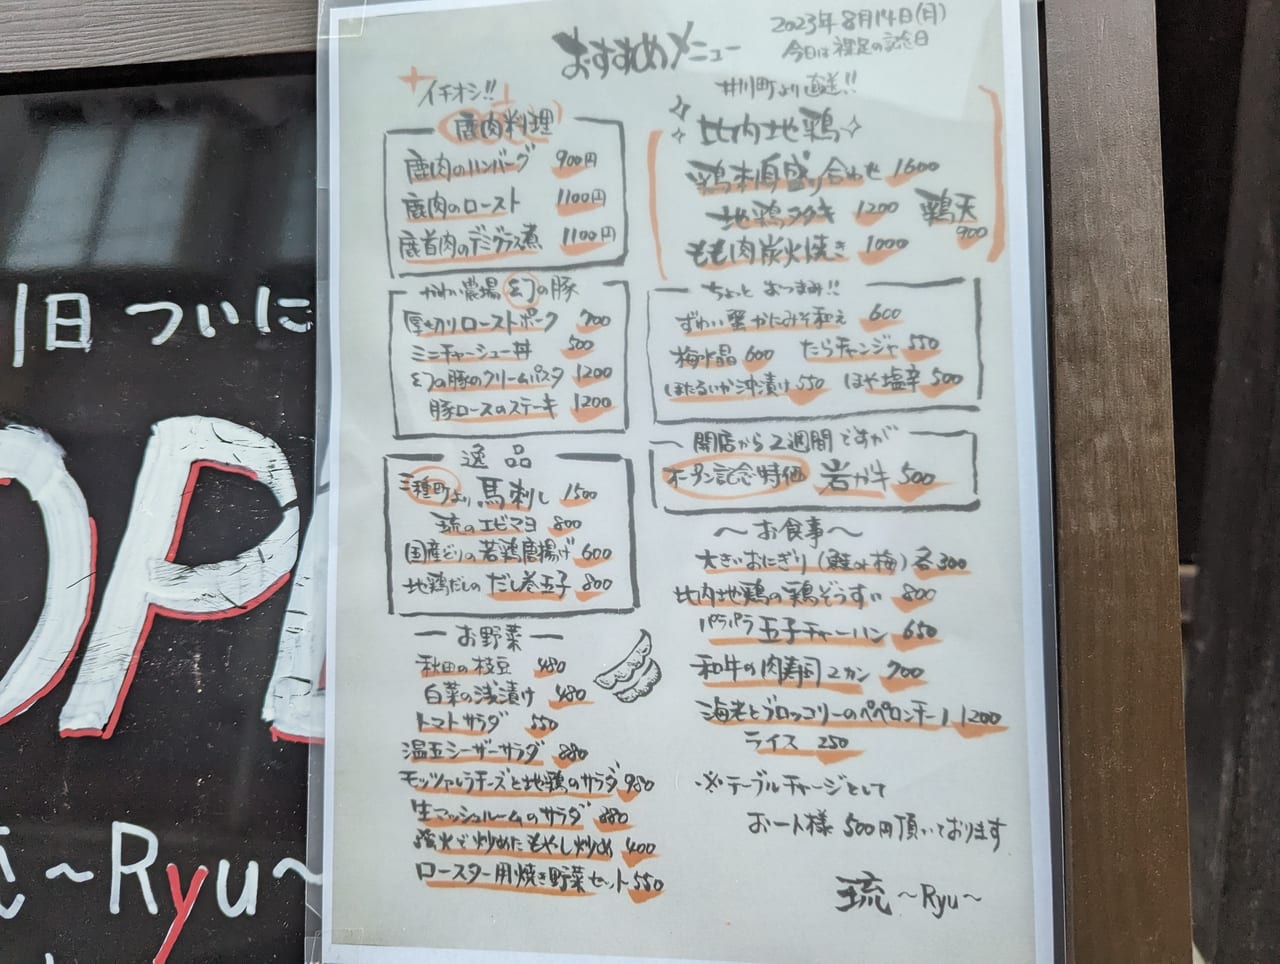 おすすめメニュー
2023年8月14日(月)
今日は裸足の記念日
イチオシ!!
鹿肉料理
鹿肉のハンバーグ 900円
鹿肉のロースト 1100円
鹿首肉のデミグラス煮 1100円
かわい農場 幻の豚
厚切りローストポーク 700
ミニチャーシュー丼 500
幻の豚のクリームパスタ 1200
豚ロースのステーキ 1200
逸品
三種町より 馬刺し 1500
琉のエビマヨ 800
国産どりの若鶏唐揚げ 600
地鶏だしの だし巻玉子 800
ー お野菜 ー
秋田の枝豆 480
白菜の浅漬け 480
トマトサラダ 550
温玉シーザーサラダ 880
モッツァレラチーズと地鶏のサラダ 980
生マッシュルームのサラダ 880
強火で炒めたもやし炒め 400
ロースター用焼き野菜セット 550
井川町より直送!!
比内地鶏
鶏刺盛り合わせ 1600
地鶏タタキ 1200
鶏天 900
もも肉炭火焼き 1000
ちょっと おつまみ!!
ずわい蟹かにみそ和え 600
梅水晶 600 たらチャンジャ 550
ほたるいか沖漬け 550 ほや塩辛 500
開店から2週間ですが
オープン記念特価 岩ガキ 500
〜お食事〜
大きいおにぎり(鮭or梅)各300
比内地鶏の鶏ぞうすい 800
パラパラ 玉子チャーハン 650
和牛の肉寿司2カン 700
海老とブロッコリーのペペロンチーノ 1200
ライス 250
※テーブルチャージとして
お一人様 500円頂いております
琉 〜Ryu〜
1日 ついに
OPE
〜Ryu〜